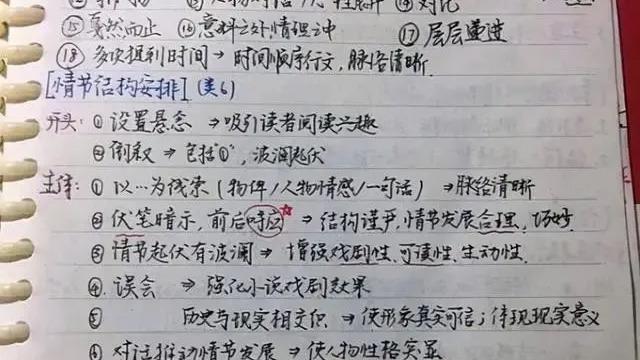 ⑭对比
⑮戛然而止 ⑯意料之外情理之中 ⑰层层递进
⑱多次提到时间→时间顺序行文,脉络清晰.
[情节结构安排](类6)
开头:①设置悬念→吸引读者阅读兴趣
②倒叙→包括"①",波澜起伏
主体:①以…为线索(物件/人物情感/一句话)→脉络清晰
②伏笔暗示,前后呼应☆⇒结构谨严,情节发展合理,巧妙.
③情节起伏有波澜→增强戏剧性、可读性、生动性.
④误会⇒强化小说戏剧效果
⑤历史与现实相交织⇒使形象真实可信;体现现实意义
⑥对话推动情节发展⇒使人物性格突显